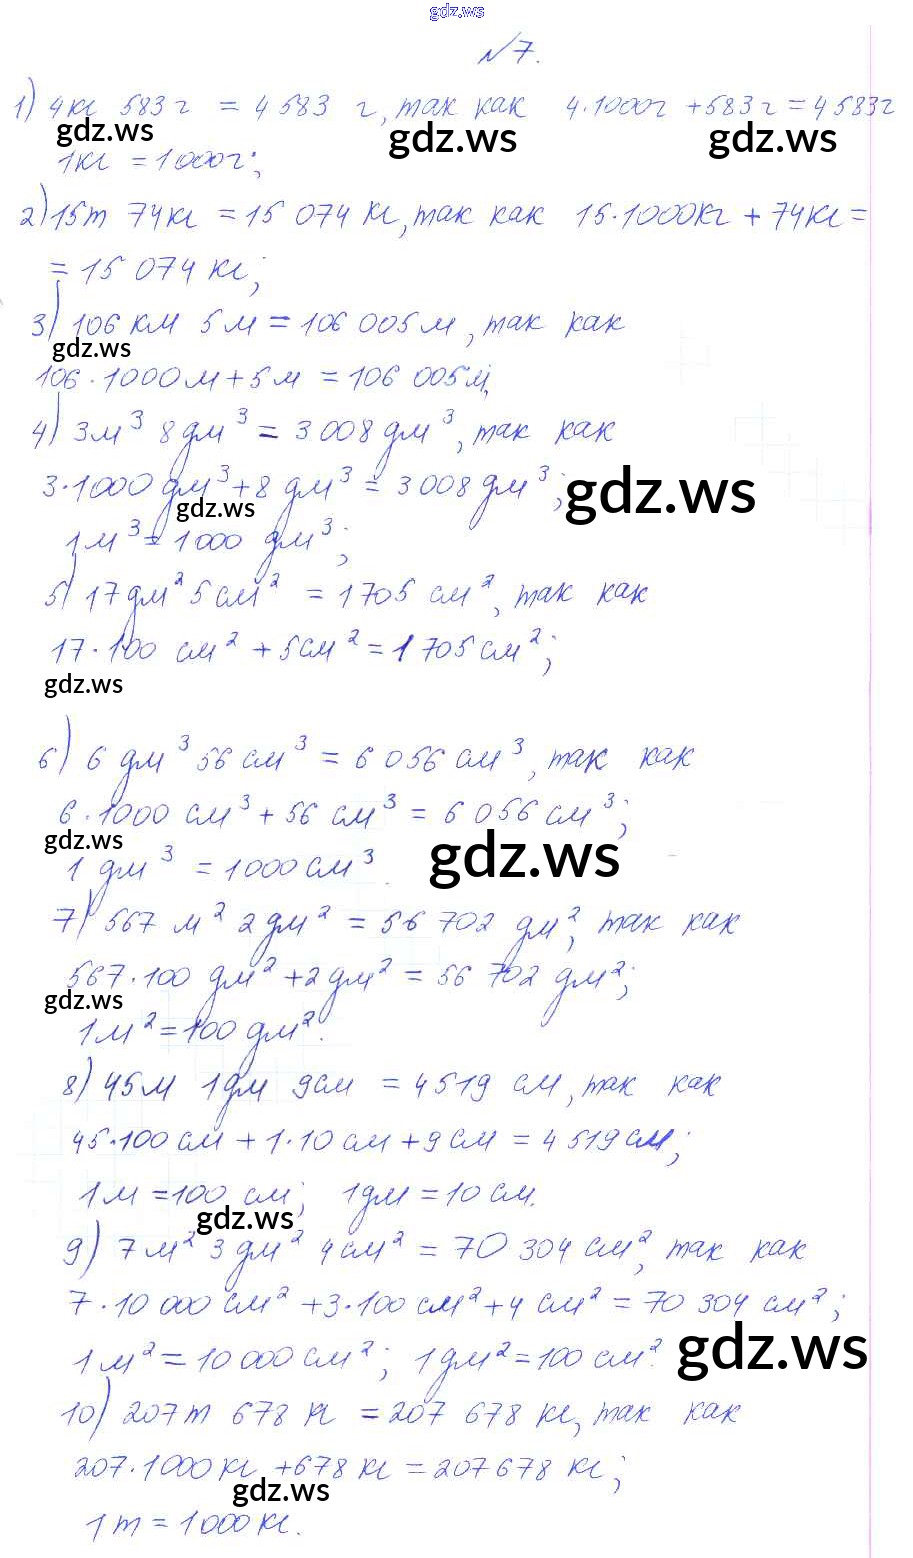 gdz.ws
№7.
1) 4кг 583г = 4 583 г, так как 4·1000г + 583г = 4 583г
gdz.ws gdz.ws gdz.ws
1кг = 1000г;
2) 15т 74кг = 15 074 кг, так как 15·1000кг + 74кг =
= 15 074 кг;
3) 106 км 5м = 106 005м, так как
gdz.ws
106·1000м + 5м = 106 005м,
4) 3м³ 8дм³ = 3 008 дм³, так как
3·1000 дм³ + 8 дм³ = 3 008 дм³;
gdz.ws gdz.ws
1м³ = 1000 дм³;
5) 17дм² 5см² = 1705 см², так как
17·100 см² + 5см² = 1 705 см²;
gdz.ws
6) 6 дм³ 56 см³ = 6 056 см³, так как
6·1000 см³ + 56 см³ = 6 056 см³;
gdz.ws gdz.ws
1 дм³ = 1000 см³.
7) 567 м² 2дм² = 56 702 дм², так как
567·100 дм² + 2дм² = 56 702 дм²;
gdz.ws
1м² = 100 дм².
8) 45м 1дм 9см = 4 519 см, так как
45·100 см + 1·10 см + 9 см = 4 519 см;
1м = 100 см; 1дм = 10 см.
gdz.ws
9) 7м² 3 дм² 4см² = 70 304 см², так как
7·10 000 см² + 3·100 см² + 4 см² = 70 304 см²;
1 м² = 10 000 см²; 1дм² = 100 см².
gdz.ws
10) 207т 678 кг = 207 678 кг, так как
207·1000 кг + 678 кг = 207 678 кг;
gdz.ws
1т = 1000 кг.